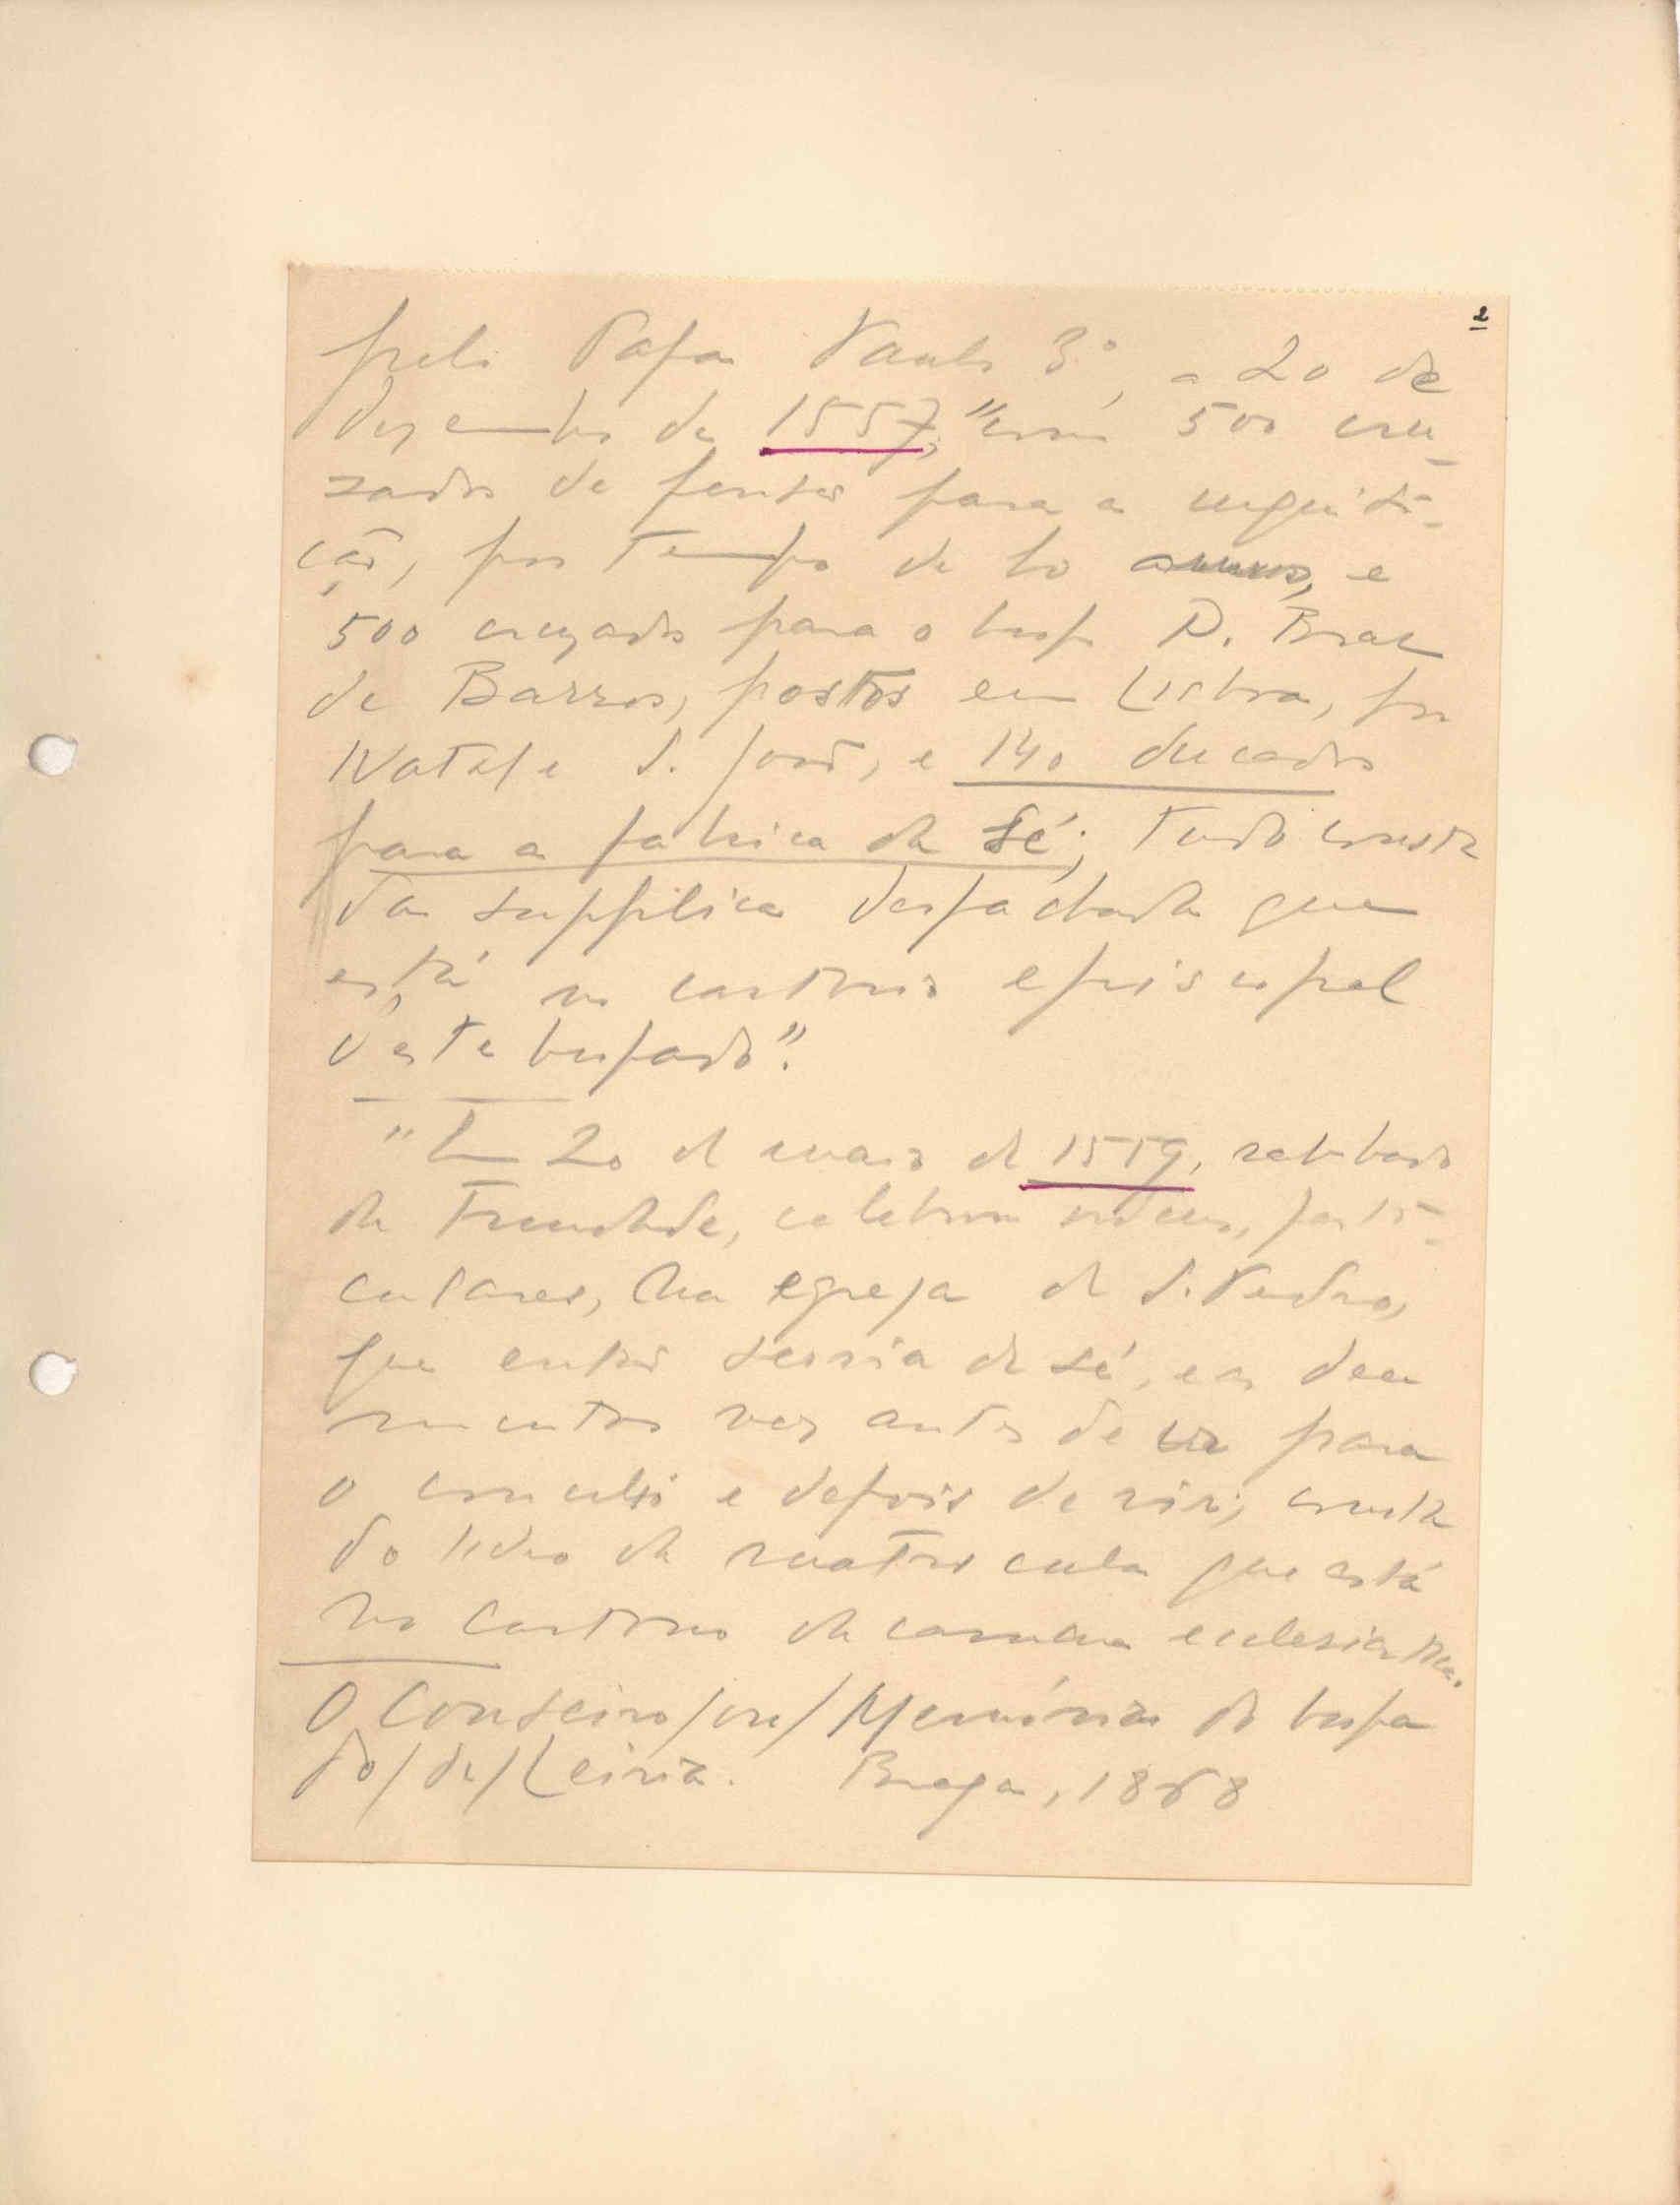 2
pelo Papa Paulo 3º, a 20 de
dezembro de 1557, "com 500 cru-
zados de pensão para a inquisi-
ção, por tempo de 10 annos, e
500 cruzados para o bispo D. Braz
de Barros, postos em Lisboa, por
Natal e S. João, e 140 ducados
para a fabrica da Sé; tudo consta
da supplica despachada que
está no cartorio episcopal
d'este bispado".
"Em 20 de maio de 1559, sabbado
da Trindade, celebrou ordens, parti-
culares, na egreja de S. Pedro,
que então servia de sé, e as deu
muitas vez antes de ir para
o concilio e depois de vir; consta
do livro da matricula que está
no cartorio da camara ecclesiastica.
O Couseiro / ou / Memórias do bispa
do / de / Leiria. Braga, 1868